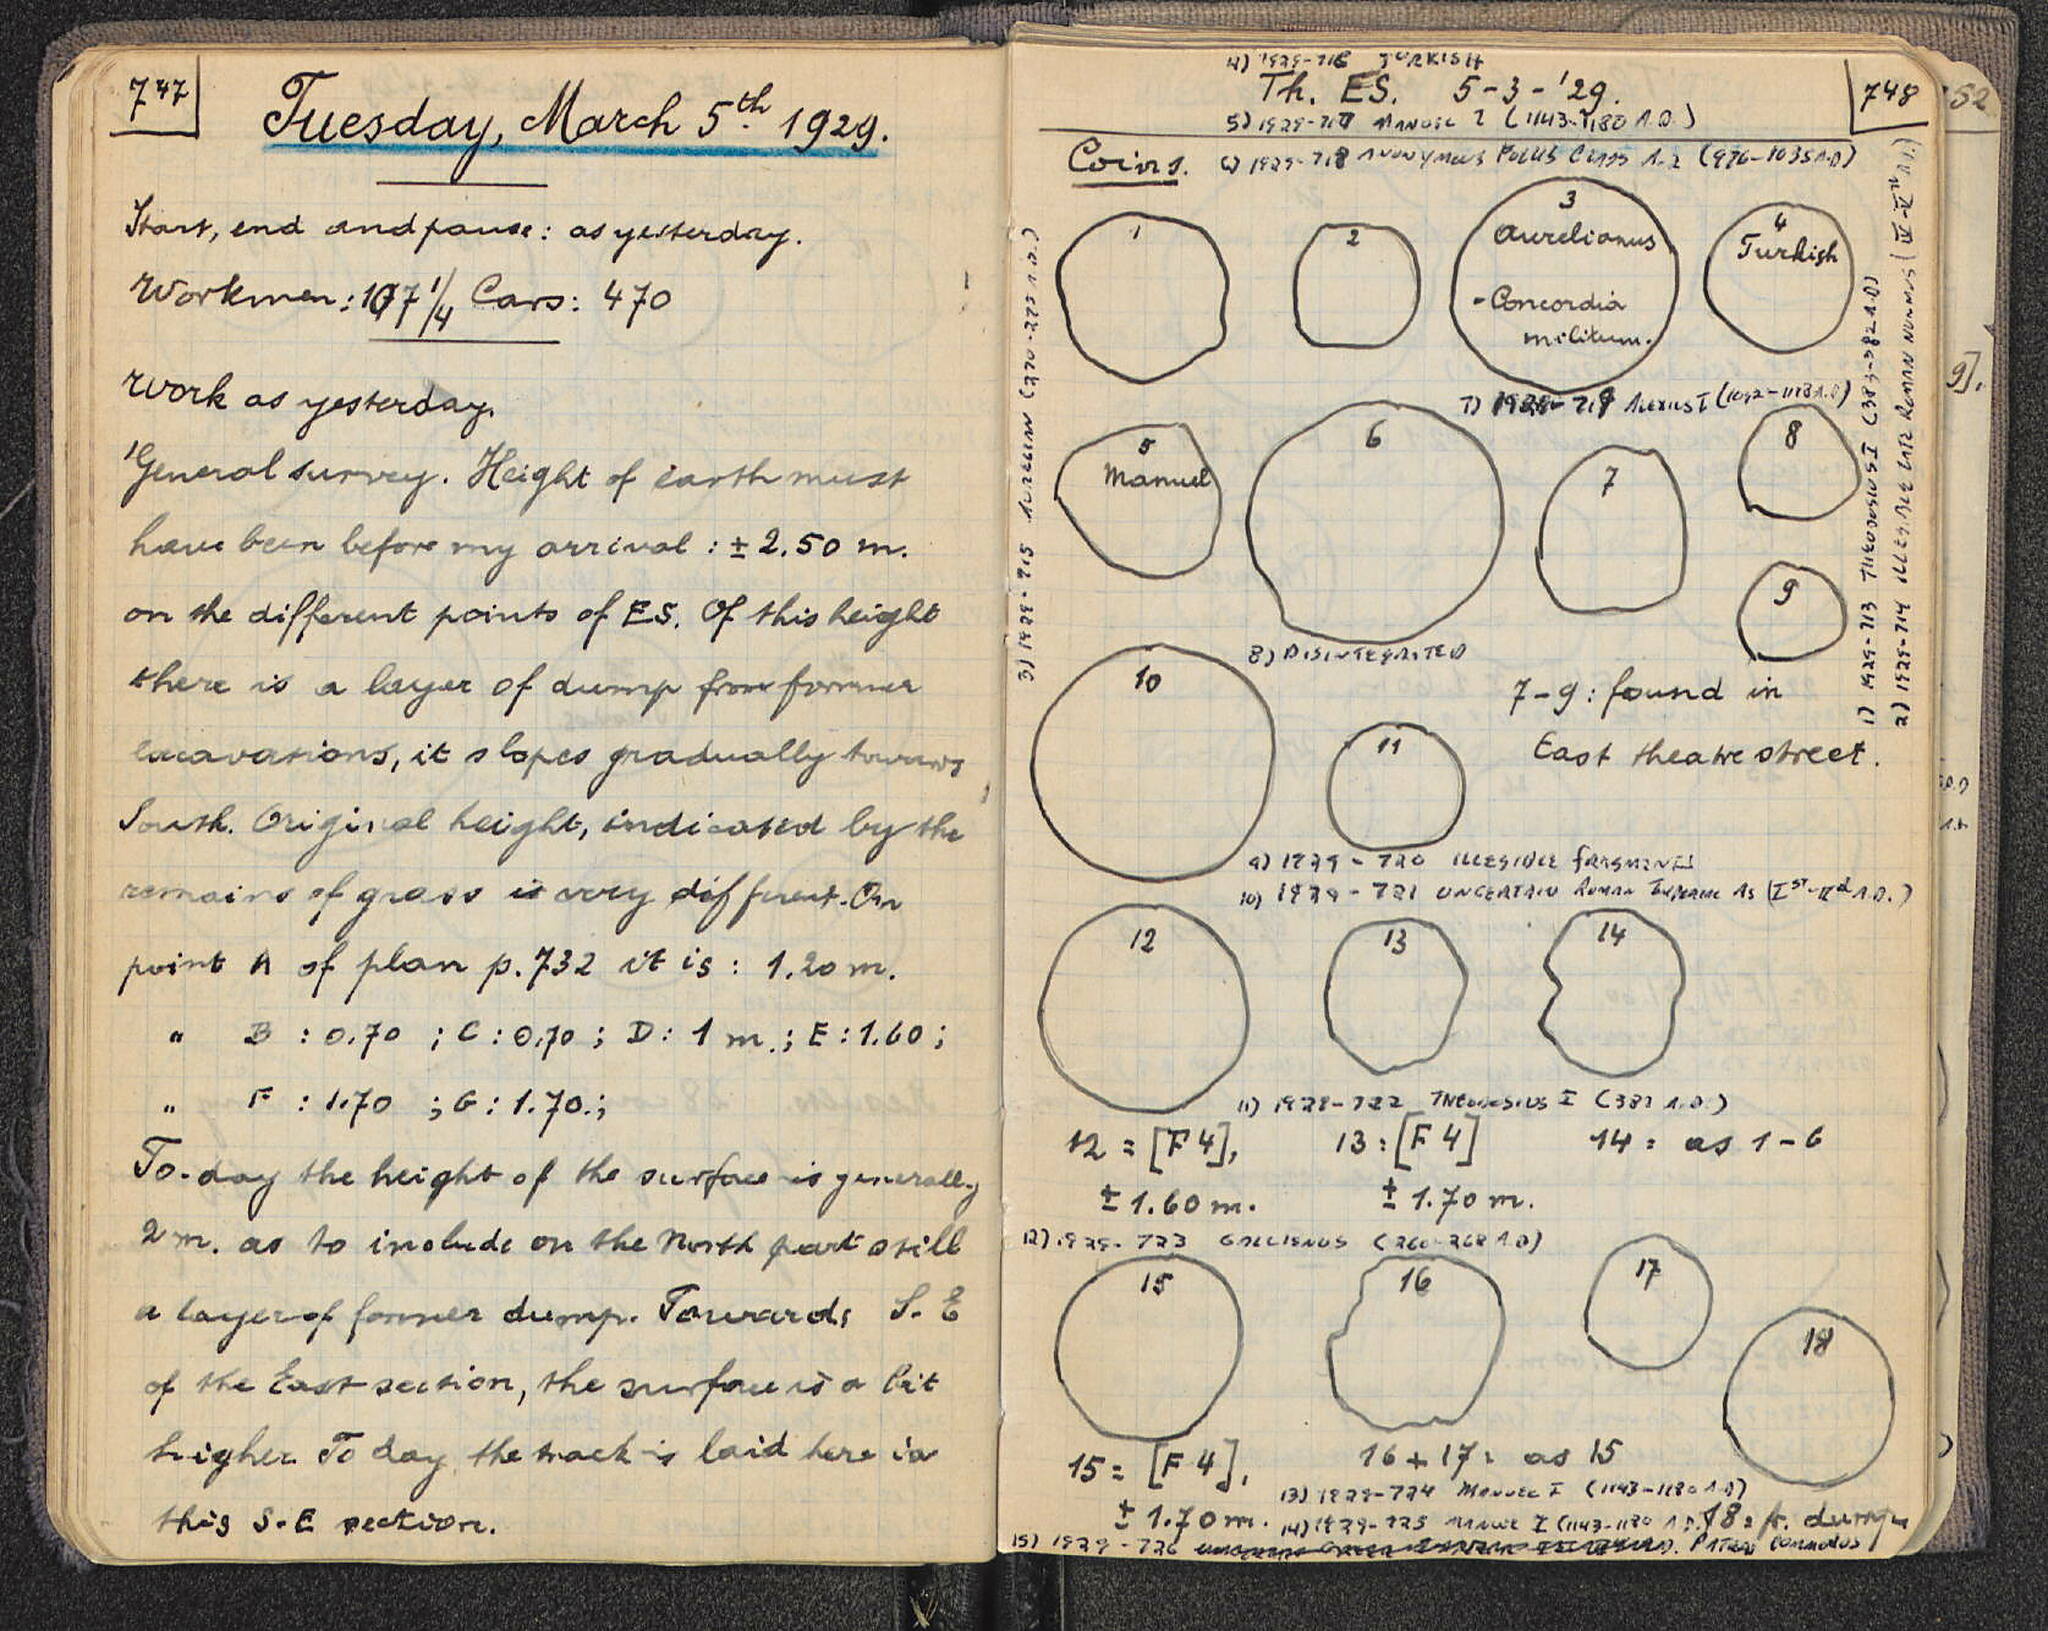 747
Tuesday, March 5th. 1929.
Start, end and pause: as yesterday.
Workmen: 107 1/4 Cars: 470
Work as yesterday.
General survey. Height of earth must
have been before my arrival: ± 2.50 m.
on the different points of ES. Of this height
there is a layer of dump from former
excavations, it slopes gradually towards
South. Original height, indicated by the
remains of grass is very different. On
point A of plan p. 732 it is: 1.20 m.
" B : 0.70 ; C : 0.70 ; D : 1 m.; E : 1.60 ;
" F : 1.70 ; G : 1.70.;
To-day the height of the surface is generally
2 m. as to include on the North part still
a layer of former dump. Towards S.E
of the East section, the surface is a bit
higher. To day the track is laid here in
this S-E section.
4) 1929-716 TURKISH
Th. ES. 5-3-'29.
748
5) 1929-717 MANUEL I (1143-1180 A.D.)
Coins. 6) 1929-718 ANONYMOUS FOLLIS CLASS A-2 (976-1035 A.D)
1
2
3
Aurelianus
-Concordia
militum.
4
Turkish
3) 1929-715 AURELIAN (270-275 A.D.)
1) 1929-713 THEODOSIUS I (383-392 A.D)
2) 1929-714 ILLEGIBLE LATE ROMAN NUMMUS (IV-Vth A.D.)
7) 1929-719 ALEXIUS I (1092-1118 A.D)
5
Manuel
6
7
8
9
8) DISINTEGRATED
10
11
7-9: found in
East theatre street.
9) 1929-720 ILLEGIBLE FRAGMENTS
10) 1929-721 UNCERTAIN ROMAN IMPERIAL AS (Ist-IInd A.D.)
12
13
14
11) 1929-722 THEODOSIUS I (383 A.D.)
12 = [F 4],
± 1.60 m.
13 : [F 4]
± 1.70 m.
14 : as 1-6
12) 1929-723 GALLIENUS (260-268 A.D)
15
16
17
18
15 = [F 4],
± 1.70 m.
16 + 17 : as 15
13) 1929-724 MANUEL I (1143-1180 A.D)
14) 1929-725 MANUEL I (1143-1180 A.D.)
18 : fr. dump
15) 1929-726 PATRAI COMMODUS